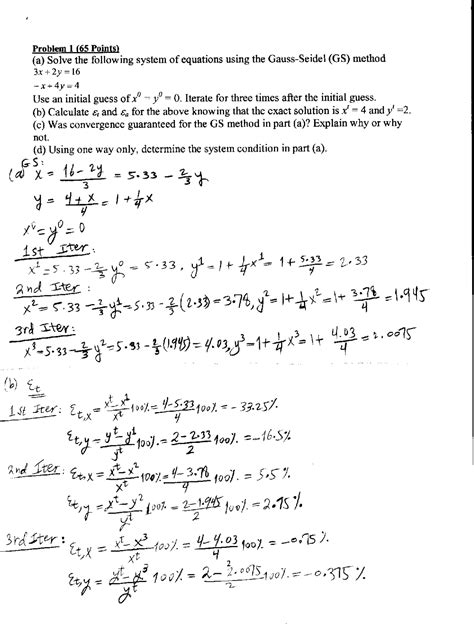 Problem 1 (65 Points)
(a) Solve the following system of equations using the Gauss-Seidel (GS) method
3x + 2y = 16
– x + 4y = 4
Use an initial guess of x⁰ – y⁰ = 0. Iterate for three times after the initial guess.
(b) Calculate εₜ and εₐ for the above knowing that the exact solution is xᵗ = 4 and yᵗ =2.
(c) Was convergence guaranteed for the GS method in part (a)? Explain why or why
not.
(d) Using one way only, determine the system condition in part (a).
GS:
(a) x = (16 - 2y)/3 = 5.33 - 2/3 y
y = (4 + x)/4 = 1 + 1/4 x
x⁰ = y⁰ = 0
1st Iter:
x¹ = 5.33 - 2/3 y⁰ = 5.33, y¹ = 1 + 1/4 x¹ = 1 + 5.33/4 = 2.33
2nd Iter:
x² = 5.33 - 2/3 y¹ = 5.33 - 2/3 (2.33) = 3.78, y² = 1 + 1/4 x² = 1 + 3.78/4 = 1.945
3rd Iter:
x³ = 5.33 - 2/3 y² = 5.33 - 2/3 (1.945) = 4.03, y³ = 1 + 1/4 x³ = 1 + 4.03/4 = 2.0075
(b) Ɛt
1st Iter: Ɛt,x = (xᵗ - x¹)/xᵗ 100% = (4 - 5.33)/4 100% = -33.25%
Ɛt,y = (yᵗ - y¹)/yᵗ 100% = (2 - 2.33)/2 100% = -16.5%
2nd Iter: Ɛt,x = (xᵗ - x²)/xᵗ 100% = (4 - 3.78)/4 100% = 5.5%
Ɛt,y = (yᵗ - y²)/yᵗ 100% = (2 - 1.945)/2 100% = 2.75%
3rd Iter: Ɛt,x = (xᵗ - x³)/xᵗ 100% = (4 - 4.03)/4 100% = -0.75%
Ɛt,y = (yᵗ - y³)/yᵗ 100% = (2 - 2.0075)/2 100% = -0.375%